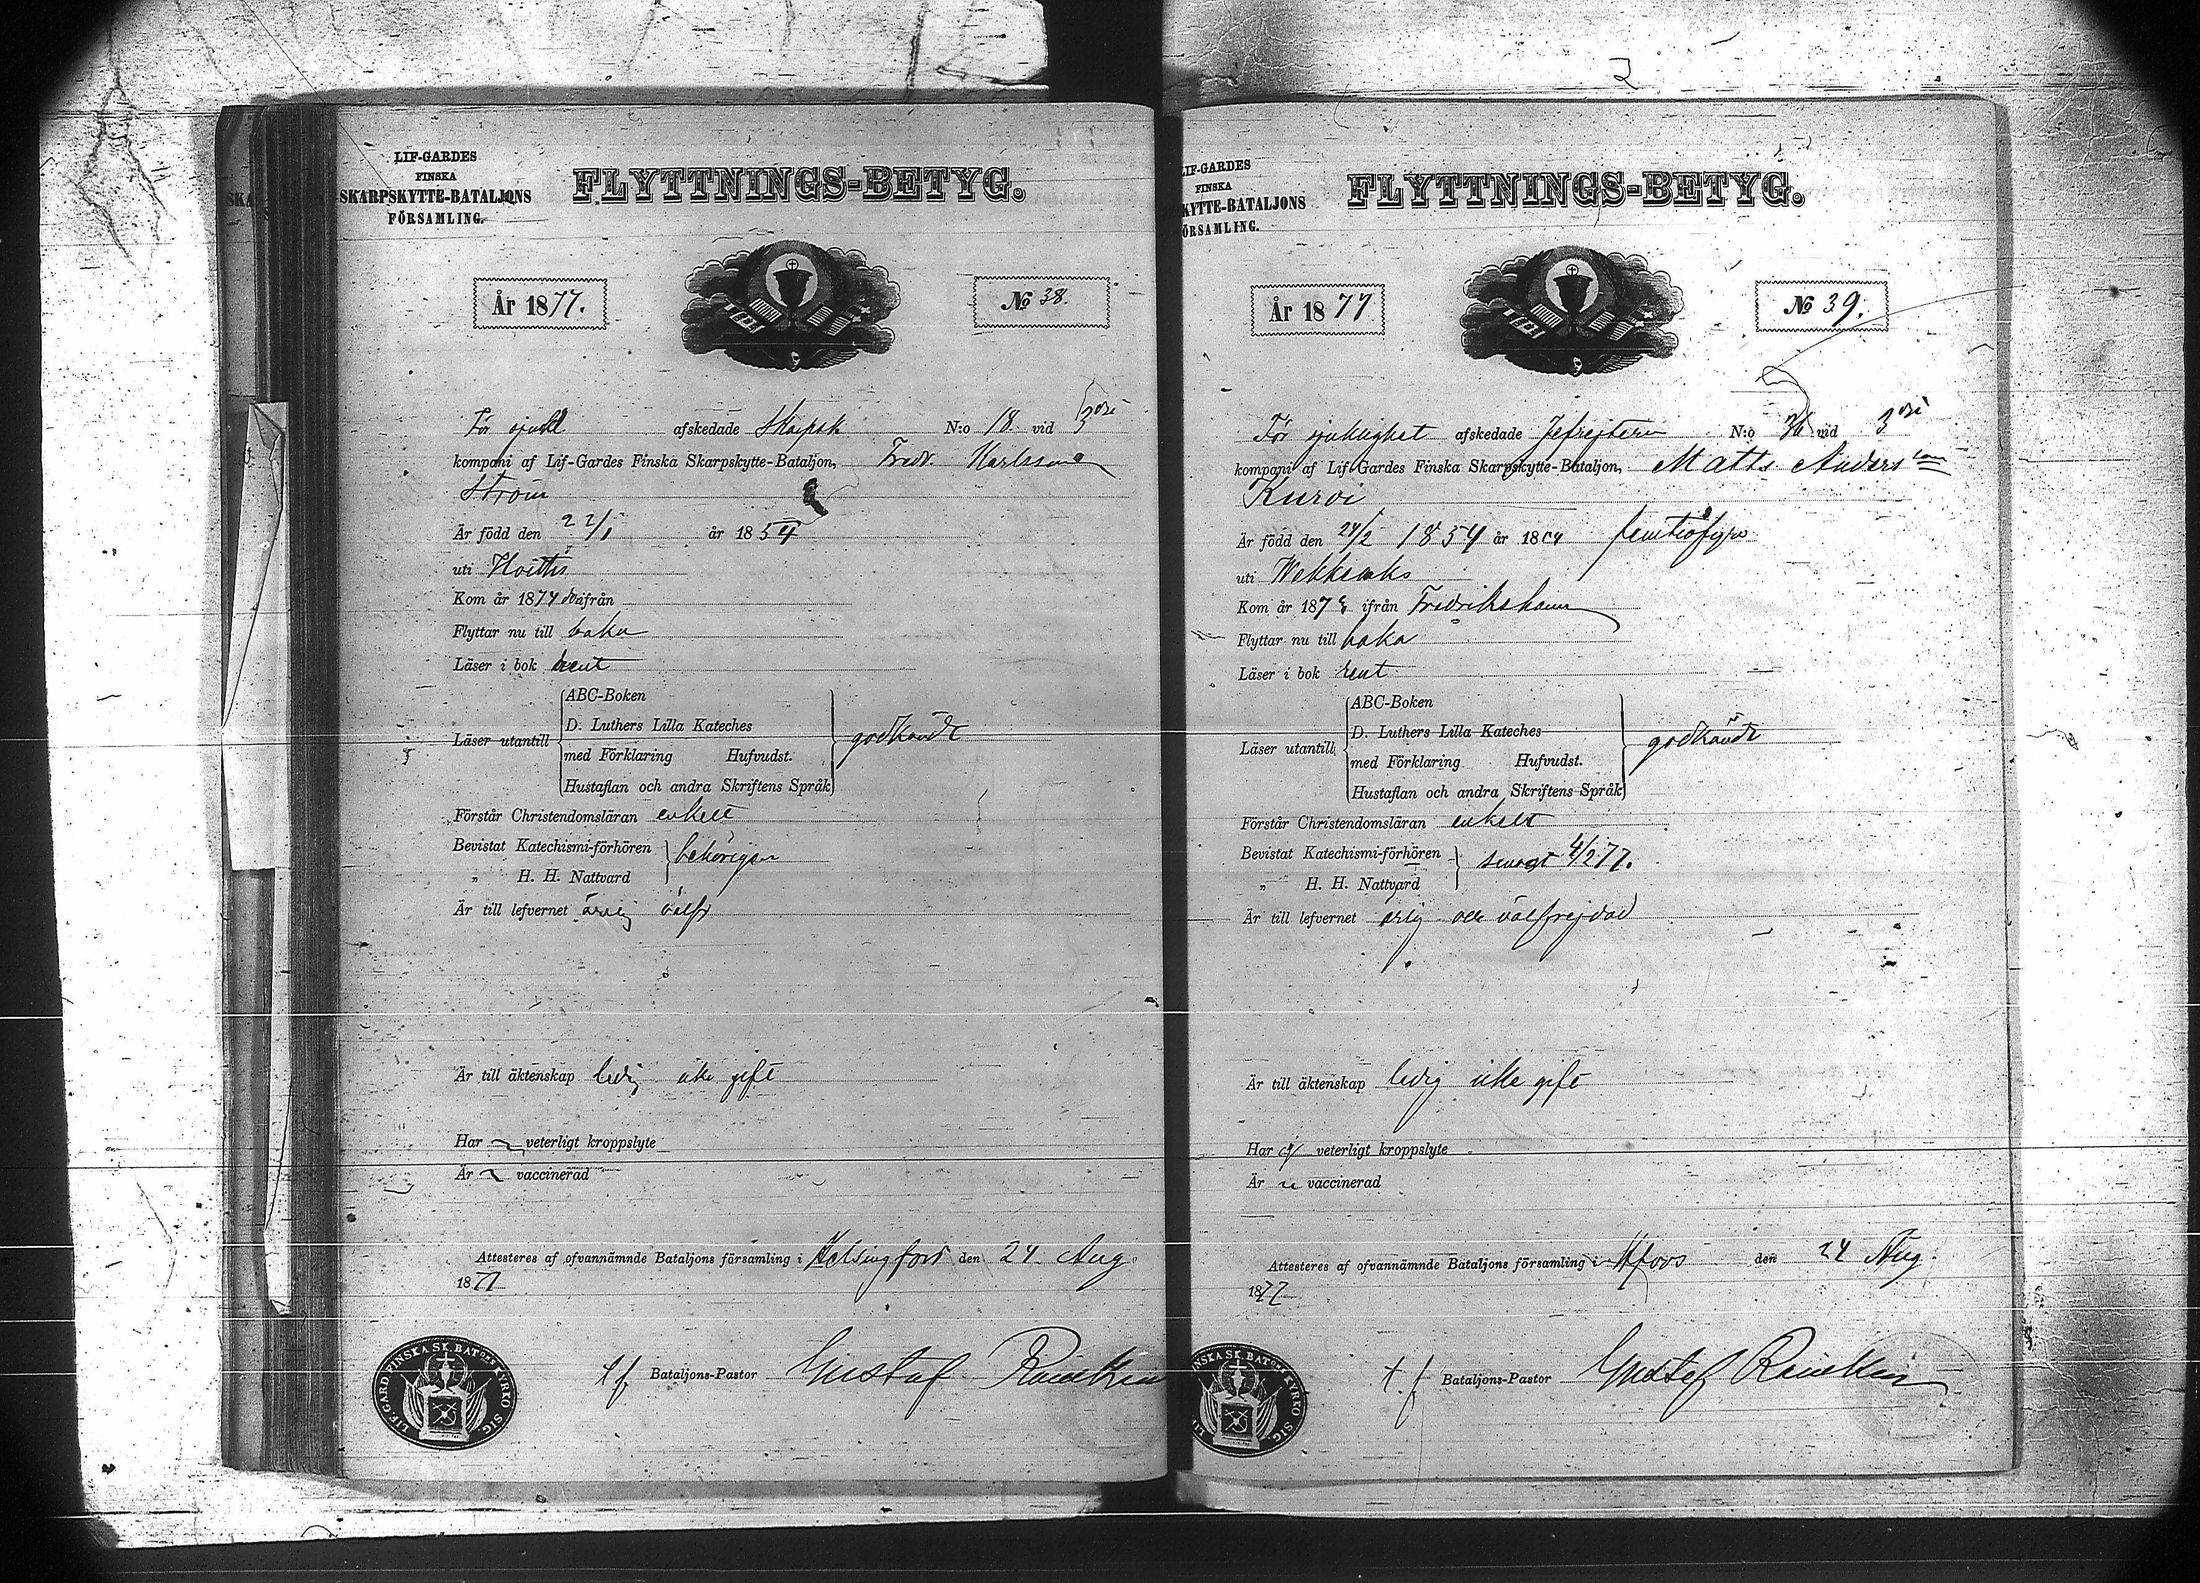 LIF-GARDES
FINSKA
SKARPSKYTTE-BATALJONS
FÖRSAMLING.
FLYTTNINGS-BETYG.
År 1877.
No 38.
För sjukl afskedade Skarpsk N:o 18 vid 3dri
kompani af Lif-Gardes Finska Skarpskytte-Bataljon, Fredr. Karlsson
Ström
Är född den 22/1 år 1854
uti
Kom år 1874 ifrån
Flyttar nu till baka
Läser i bok rent
Läser utantill
ABC-Boken
D. Luthers Lilla Kateches
med Förklaring Hufvudst.
Hustaflan och andra Skriftens Språk
godkändt
Förstår Christendomsläran enkelt
Bevistat Katechismi-förhören
" H. H. Nattvard
behörigen
Är till lefvernet ärlig välfr
Är till äktenskap ledig icke gift
Har veterligt kroppslyte
Är vaccinerad
Attesteres af ofvannämnde Bataljons församling i Helsingfors den 24 Aug
1877
t.f Bataljons-Pastor Gustaf
LIF.GARD.FINSKA SK.BAT:ONS KYRKO SIG.
LIF-GARDES
FINSKA
KYTTE-BATALJONS
ÖRSAMLING.
FLYTTNINGS-BETYG.
År 1877
No 39.
För sjuklighet afskedade Gefrejtern N:o 36 vid 3dri
kompani af Lif-Gardes Finska Skarpskytte-Bataljon, Matts Andersson
Kurvi
Är född den 24/2 1854 år 1854 femtiofyra
uti
Kom år 187 ifrån Fredrikshamn
Flyttar nu till baka
Läser i bok rent
Läser utantill
ABC-Boken
D. Luthers Lilla Kateches
med Förklaring Hufvudst.
Hustaflan och andra Skriftens Språk
godkändt
Förstår Christendomsläran enkelt
Bevistat Katechismi-förhören
" H. H. Nattvard
senast 4/2 77.
Är till lefvernet ärlig och välfrejdad
Är till äktenskap ledig icke gift
Har ej veterligt kroppslyte
Är vaccinerad
Attesteres af ofvannämnde Bataljons församling i Hfors den 24 Aug.
1877
t.f Bataljons-Pastor Gustaf